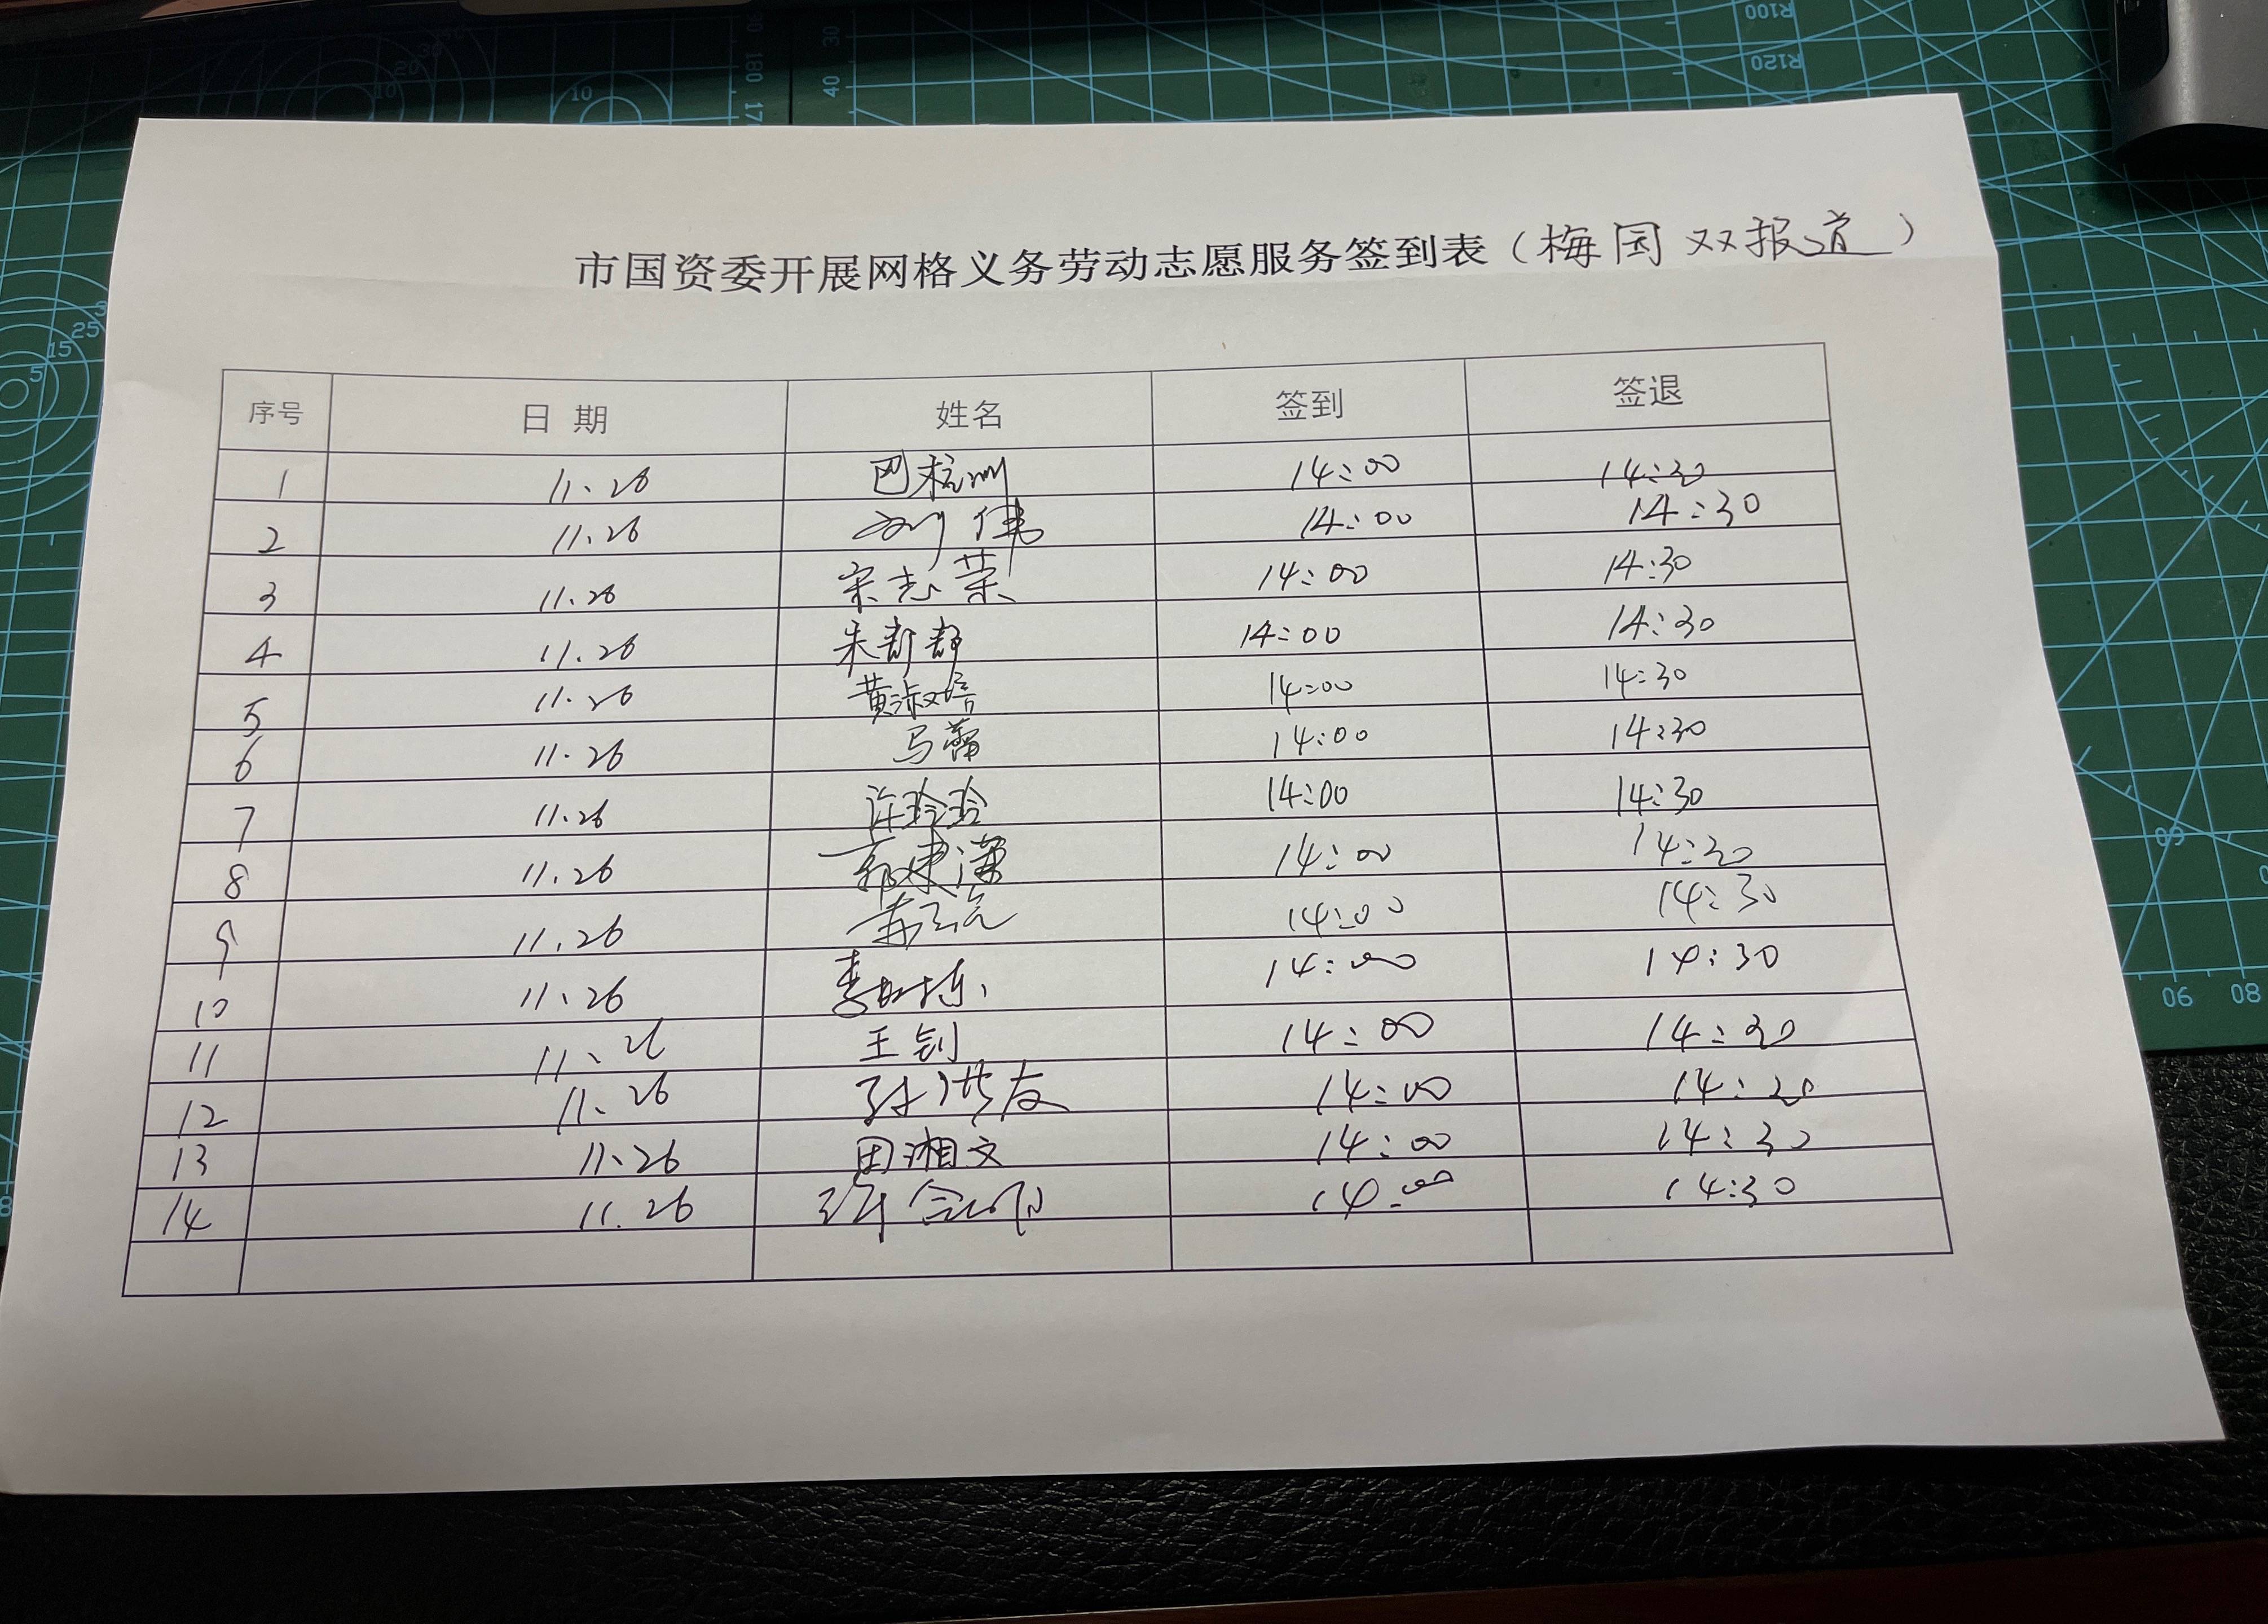 市国资委开展网格义务劳动志愿服务签到表（梅园双报道）
序号 日期 姓名 签到 签退
1 11、26 巴杭州 14:00 14:30
2 11.26 刘伟 14:00 14:30
3 11.26 宋志荣 14:00 14:30
4 11.26 朱新静 14:00 14:30
5 11.26 黄淑婧 14:00 14:30
6 11.26 马蕾 14:00 14:30
7 11.26 许玲玲 14:00 14:30
8 11.26 郭建潇 14:00 14:30
9 11.26 14:00 14:30
10 11.26 李 14:00 14:30
11 11、26 王钊 14:00 14:30
12 11、26 孙洪友 14:00 14:30
13 11、26 田湘文 14:00 14:30
14 11.26 14:00 14:30